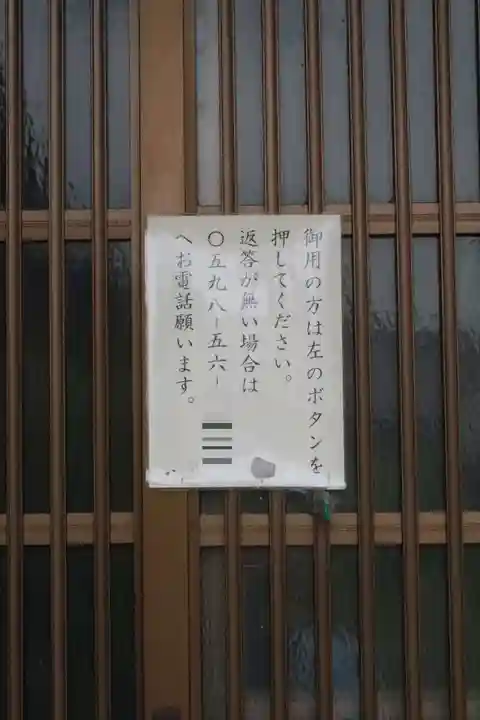 御用の方は左のボタンを
押してください。
返答が無い場合は
〇五九八ー五六ー
へお電話願います。